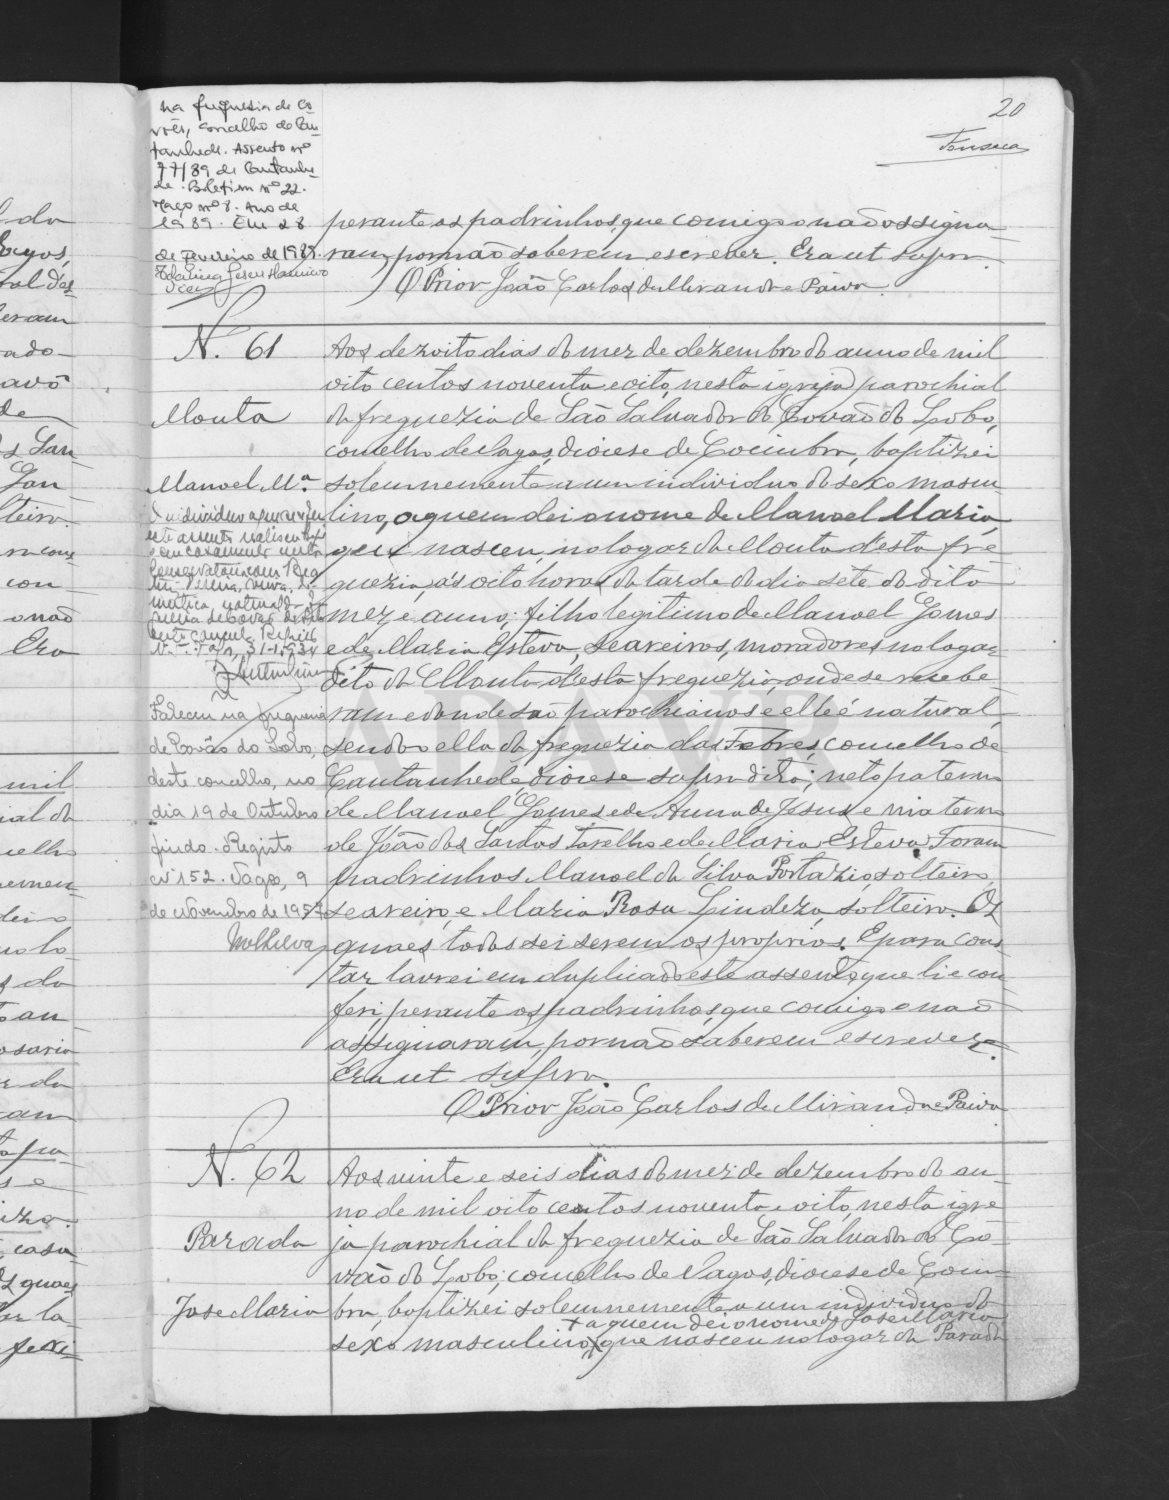 20
Fonseca
na freguesia de Co-
vões, concelho de Can-
tanhede. Assento nº
77/89 de Cantanhe-
de. Boletim nº 22.
Maço nº 8. Ano de
1989. Em 28
de Fevereiro de 1989.
perante os padrinhos, que comigo o não assigna-
ram por não saberem escrever. Era ut supra.
O Prior João Carlos de Miranda e Paiva
N. 61
Mouta
Manoel Mª
Aos dezoito dias do mez de dezembro do anno de mil
oito centos noventa e oito, nesta igreja parochial
da freguezia de São Salvador do Covão do Lobo,
concelho de Vagos, diocese de Coimbra, baptizei
solemnemente a um individuo do sexo mascu-
lino, a quem dei o nome de Manoel Maria,
que nasceu no logar da Mouta d'esta fre-
guezia, ás oito horas da tarde do dia sete do dito
mez e anno; filho legitimo de Manoel Gomes
e de Maria Esteva, seareiros, moradores no logar
dito da Mouta d'esta freguezia, onde se recebe-
ram e donde são parochianos e elle é natural,
sendo ella da freguezia das Febres, concelho de
Cantanhede, diocese supra dita; neto paterno
de Manoel Gomes e de Anna de Jesus e materno
de João dos Santos Tarelho e de Maria Esteva. Foram
padrinhos Manoel da Silva Portazio, solteiro,
seareiro, e Maria Rosa Lindeza, solteira. Os
quaes todos sei serem os proprios. E para cons-
tar lavrei em duplicado este assento, que li e con-
feri, perante os padrinhos, que comigo o não
assignaram, por não saberem escrever.
Era ut supra.
O Prior João Carlos de Miranda e Paiva
Faleceu na freguesia
de Covão do Lobo,
deste concelho, no
dia 19 de Outubro
findo. Registo
nº 152. Vagos, 9
de Novembro de 1957
N. 62
Parada
Jose Maria
Aos vinte e seis dias do mez de dezembro do an-
no de mil oito centos noventa e oito, nesta igre-
ja parochial da freguezia de São Salvador do Co-
vão do Lobo, concelho de Vagos, diocese de Coim-
bra, baptizei solemnemente a um individuo do
+ a quem dei o nome de Jose Maria
sexo masculino, + que nasceu no logar da Parada
ADAVR